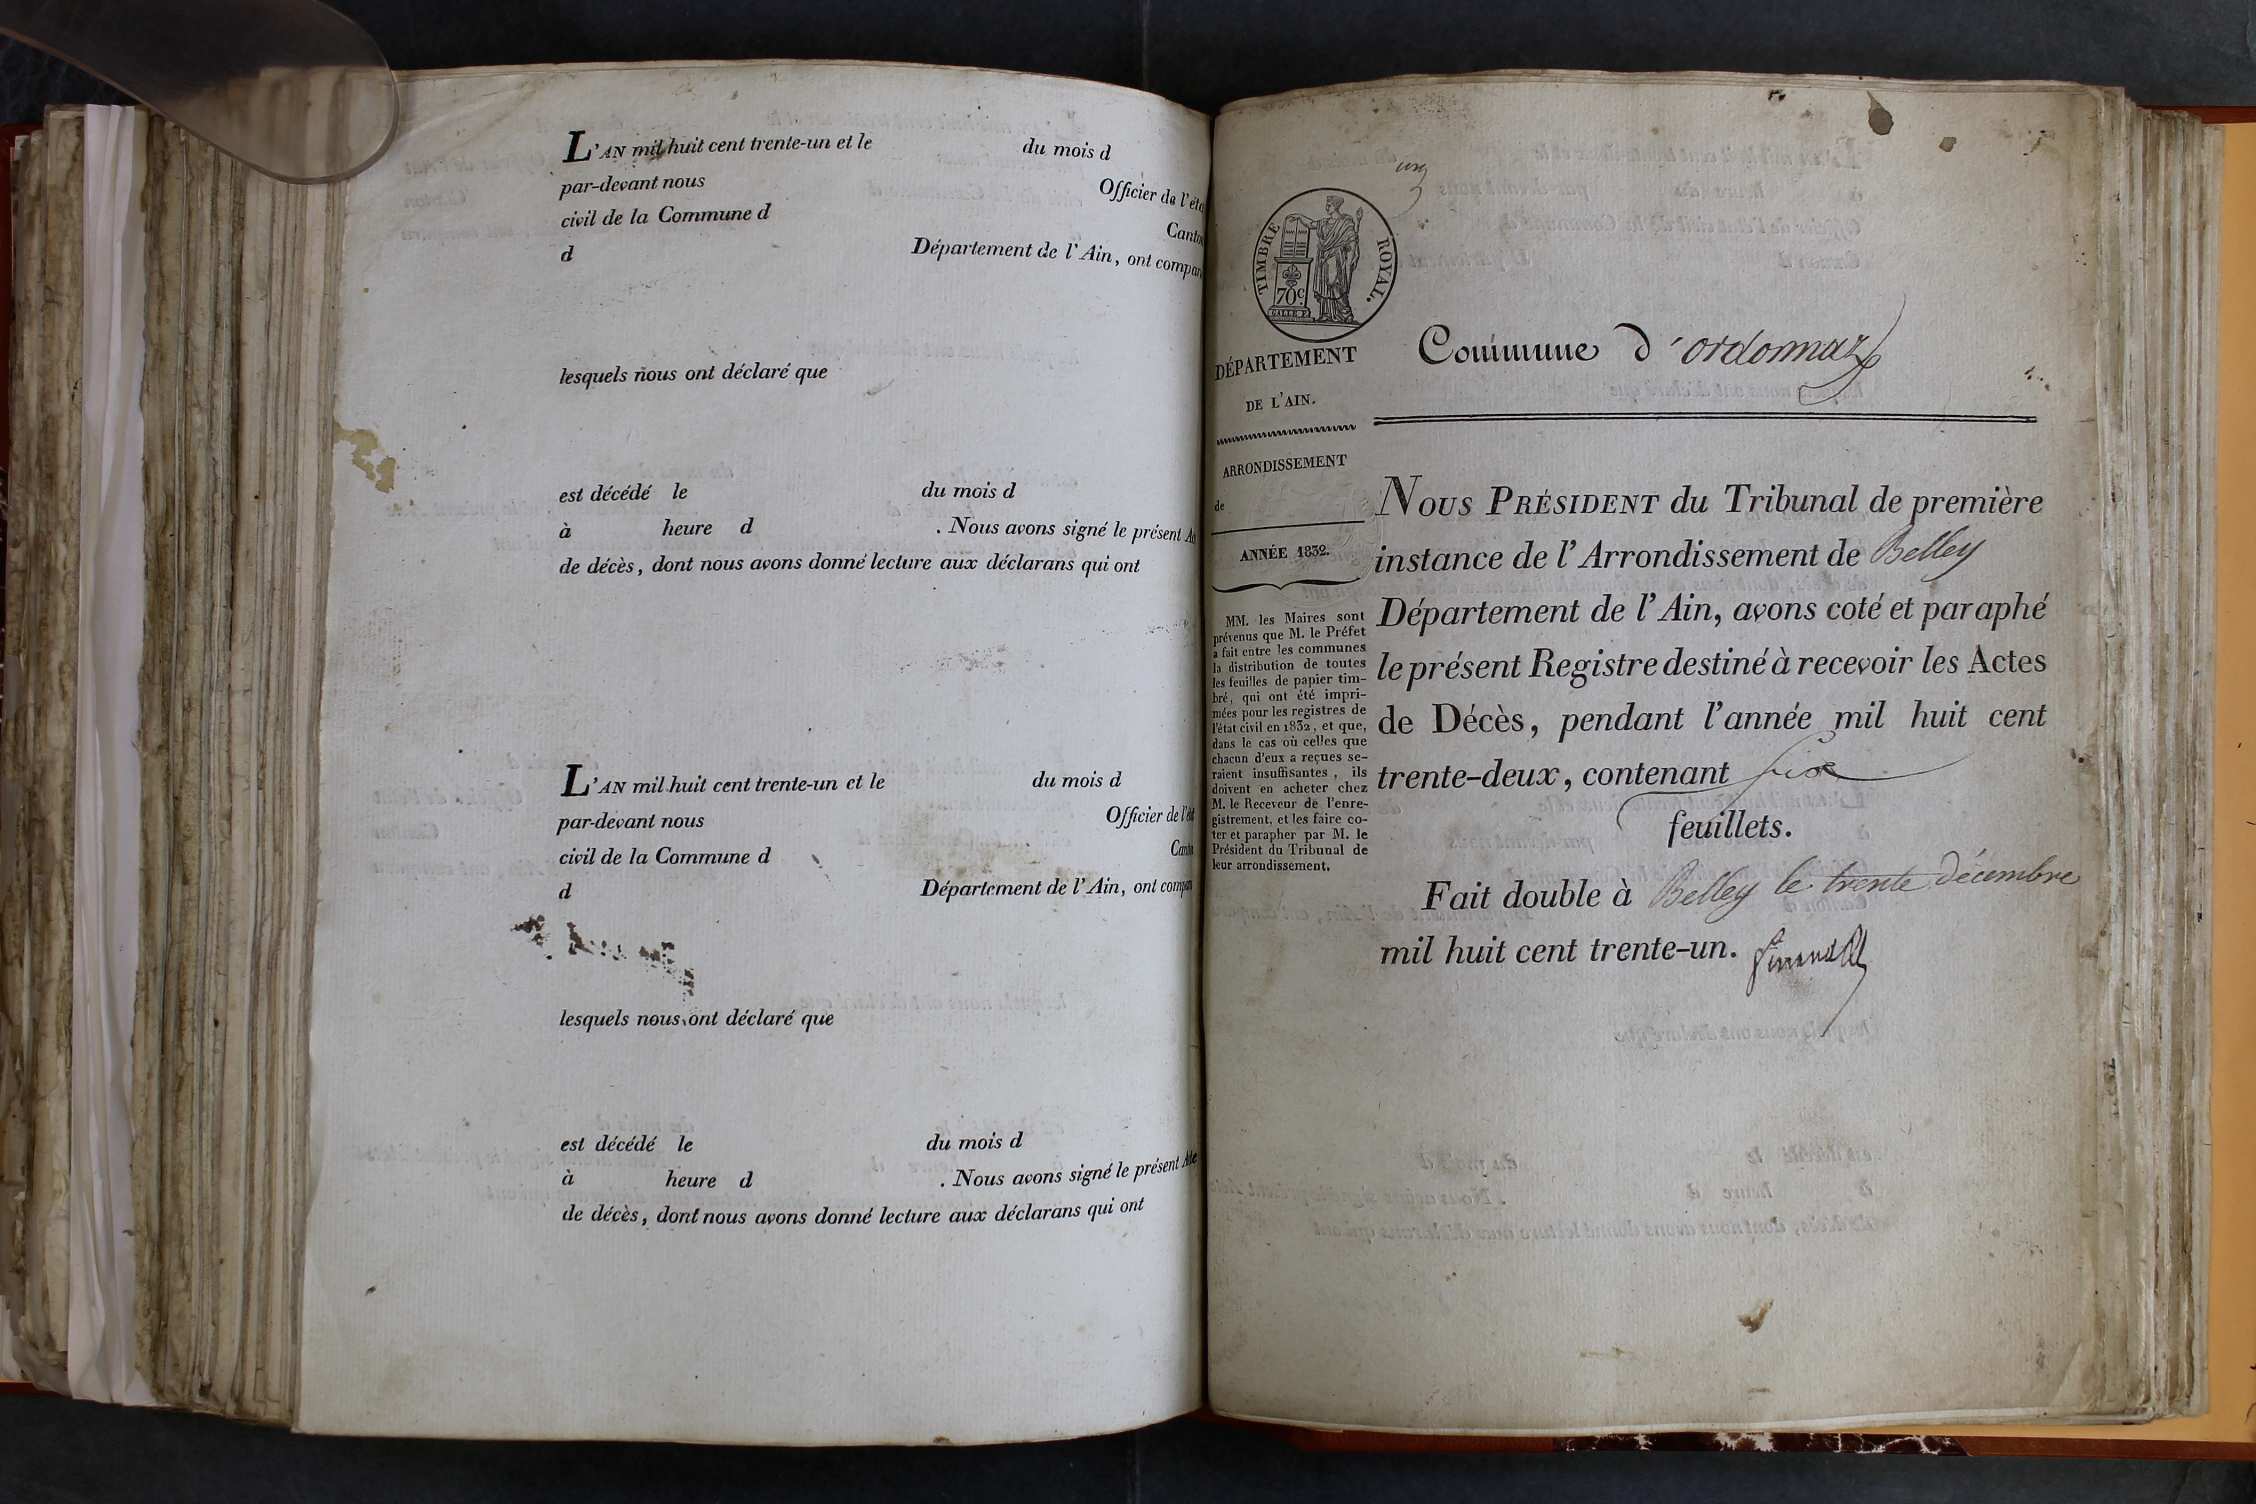 L'AN mil huit cent trente-un et le du mois d
par-devant nous Officier de l'éta
civil de la Commune d Canton
d Département de l'Ain, ont compar
lesquels nous ont déclaré que
est décédé le du mois d
à heure d . Nous avons signé le présent Ac
de décès, dont nous avons donné lecture aux déclarans qui ont
L'AN mil huit cent trente-un et le du mois d
par-devant nous Officier de l'éta
civil de la Commune d Canto
d Département de l'Ain, ont compar
lesquels nous ont déclaré que
est décédé le du mois d
à heure d . Nous avons signé le présent Acte
de décès, dont nous avons donné lecture aux déclarans qui ont
un
TIMBRE ROYAL.
70c.
DÉPARTEMENT
DE L'AIN.
ARRONDISSEMENT
de
ANNÉE 1832.
MM. les Maires sont
prévenus que M. le Préfet
a fait entre les communes
la distribution de toutes
les feuilles de papier tim-
bré, qui ont été impri-
mées pour les registres de
l'état civil en 1832, et que,
dans le cas où celles que
chacun d'eux a reçues se-
raient insuffisantes, ils
doivent en acheter chez
M. le Receveur de l'enre-
gistrement, et les faire co-
ter et parapher par M. le
Président du Tribunal de
leur arrondissement.
Commune d'ordonnaz
NOUS PRÉSIDENT du Tribunal de première
instance de l'Arrondissement de Belley
Département de l'Ain, avons coté et paraphé
le présent Registre destiné à recevoir les Actes
de Décès, pendant l'année mil huit cent
trente-deux, contenant six
feuillets.
Fait double à Belley le trente décembre
mil huit cent trente-un.